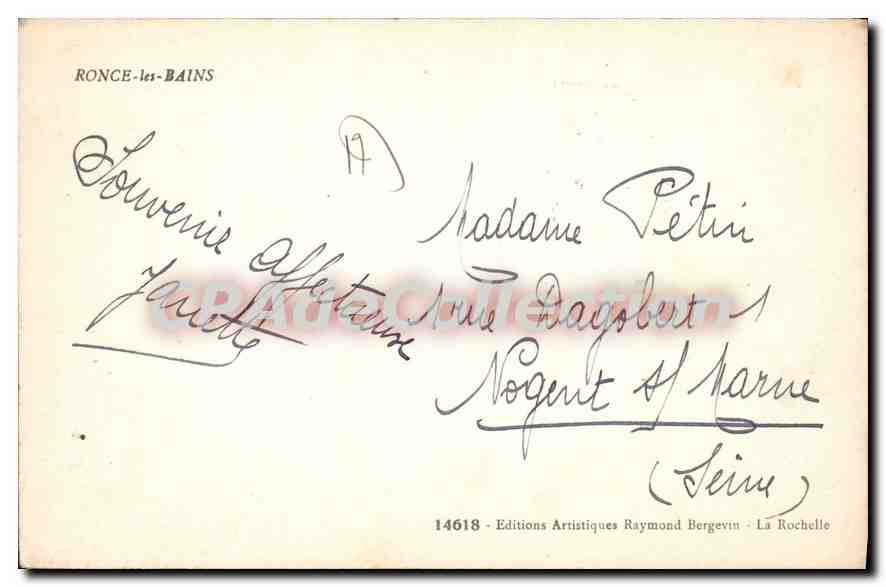 RONCE-les-BAINS
17
Souvenir affectueuse
Janette
Madame Pétin
1 rue Dagobert 1
Nogent s/ Marne
(Seine)
CPAdeCollection
14618 - Editions Artistiques Raymond Bergevin - La Rochelle